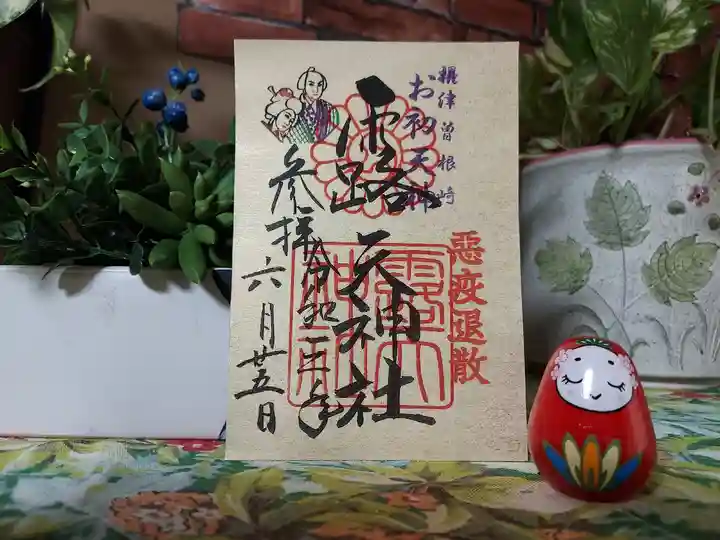 摂津曽根崎
お初天神
露天神社
悪疫退散
参拝
令和三年
六月廿五日